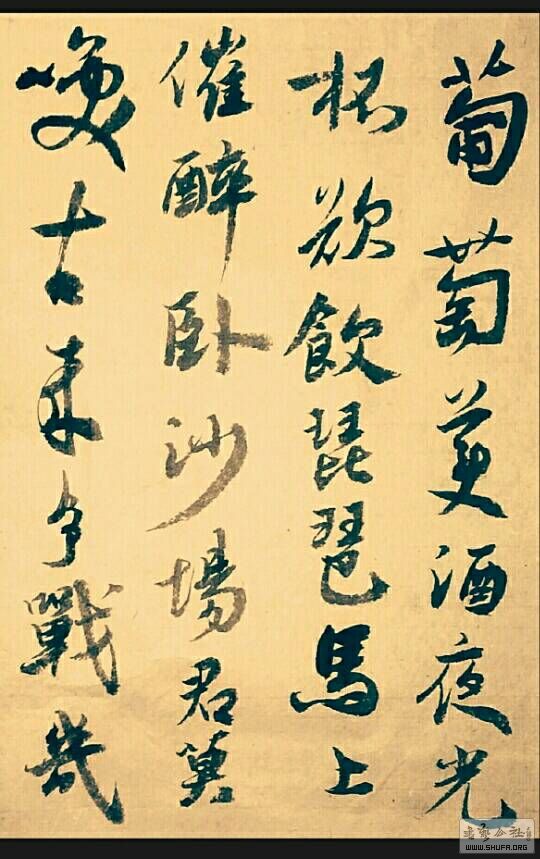 葡萄美酒夜光
杯欲飲琵琶馬上
催醉卧沙場君莫
咲古来争戰幾
書藝公社
WWW.SHUFA.ORG